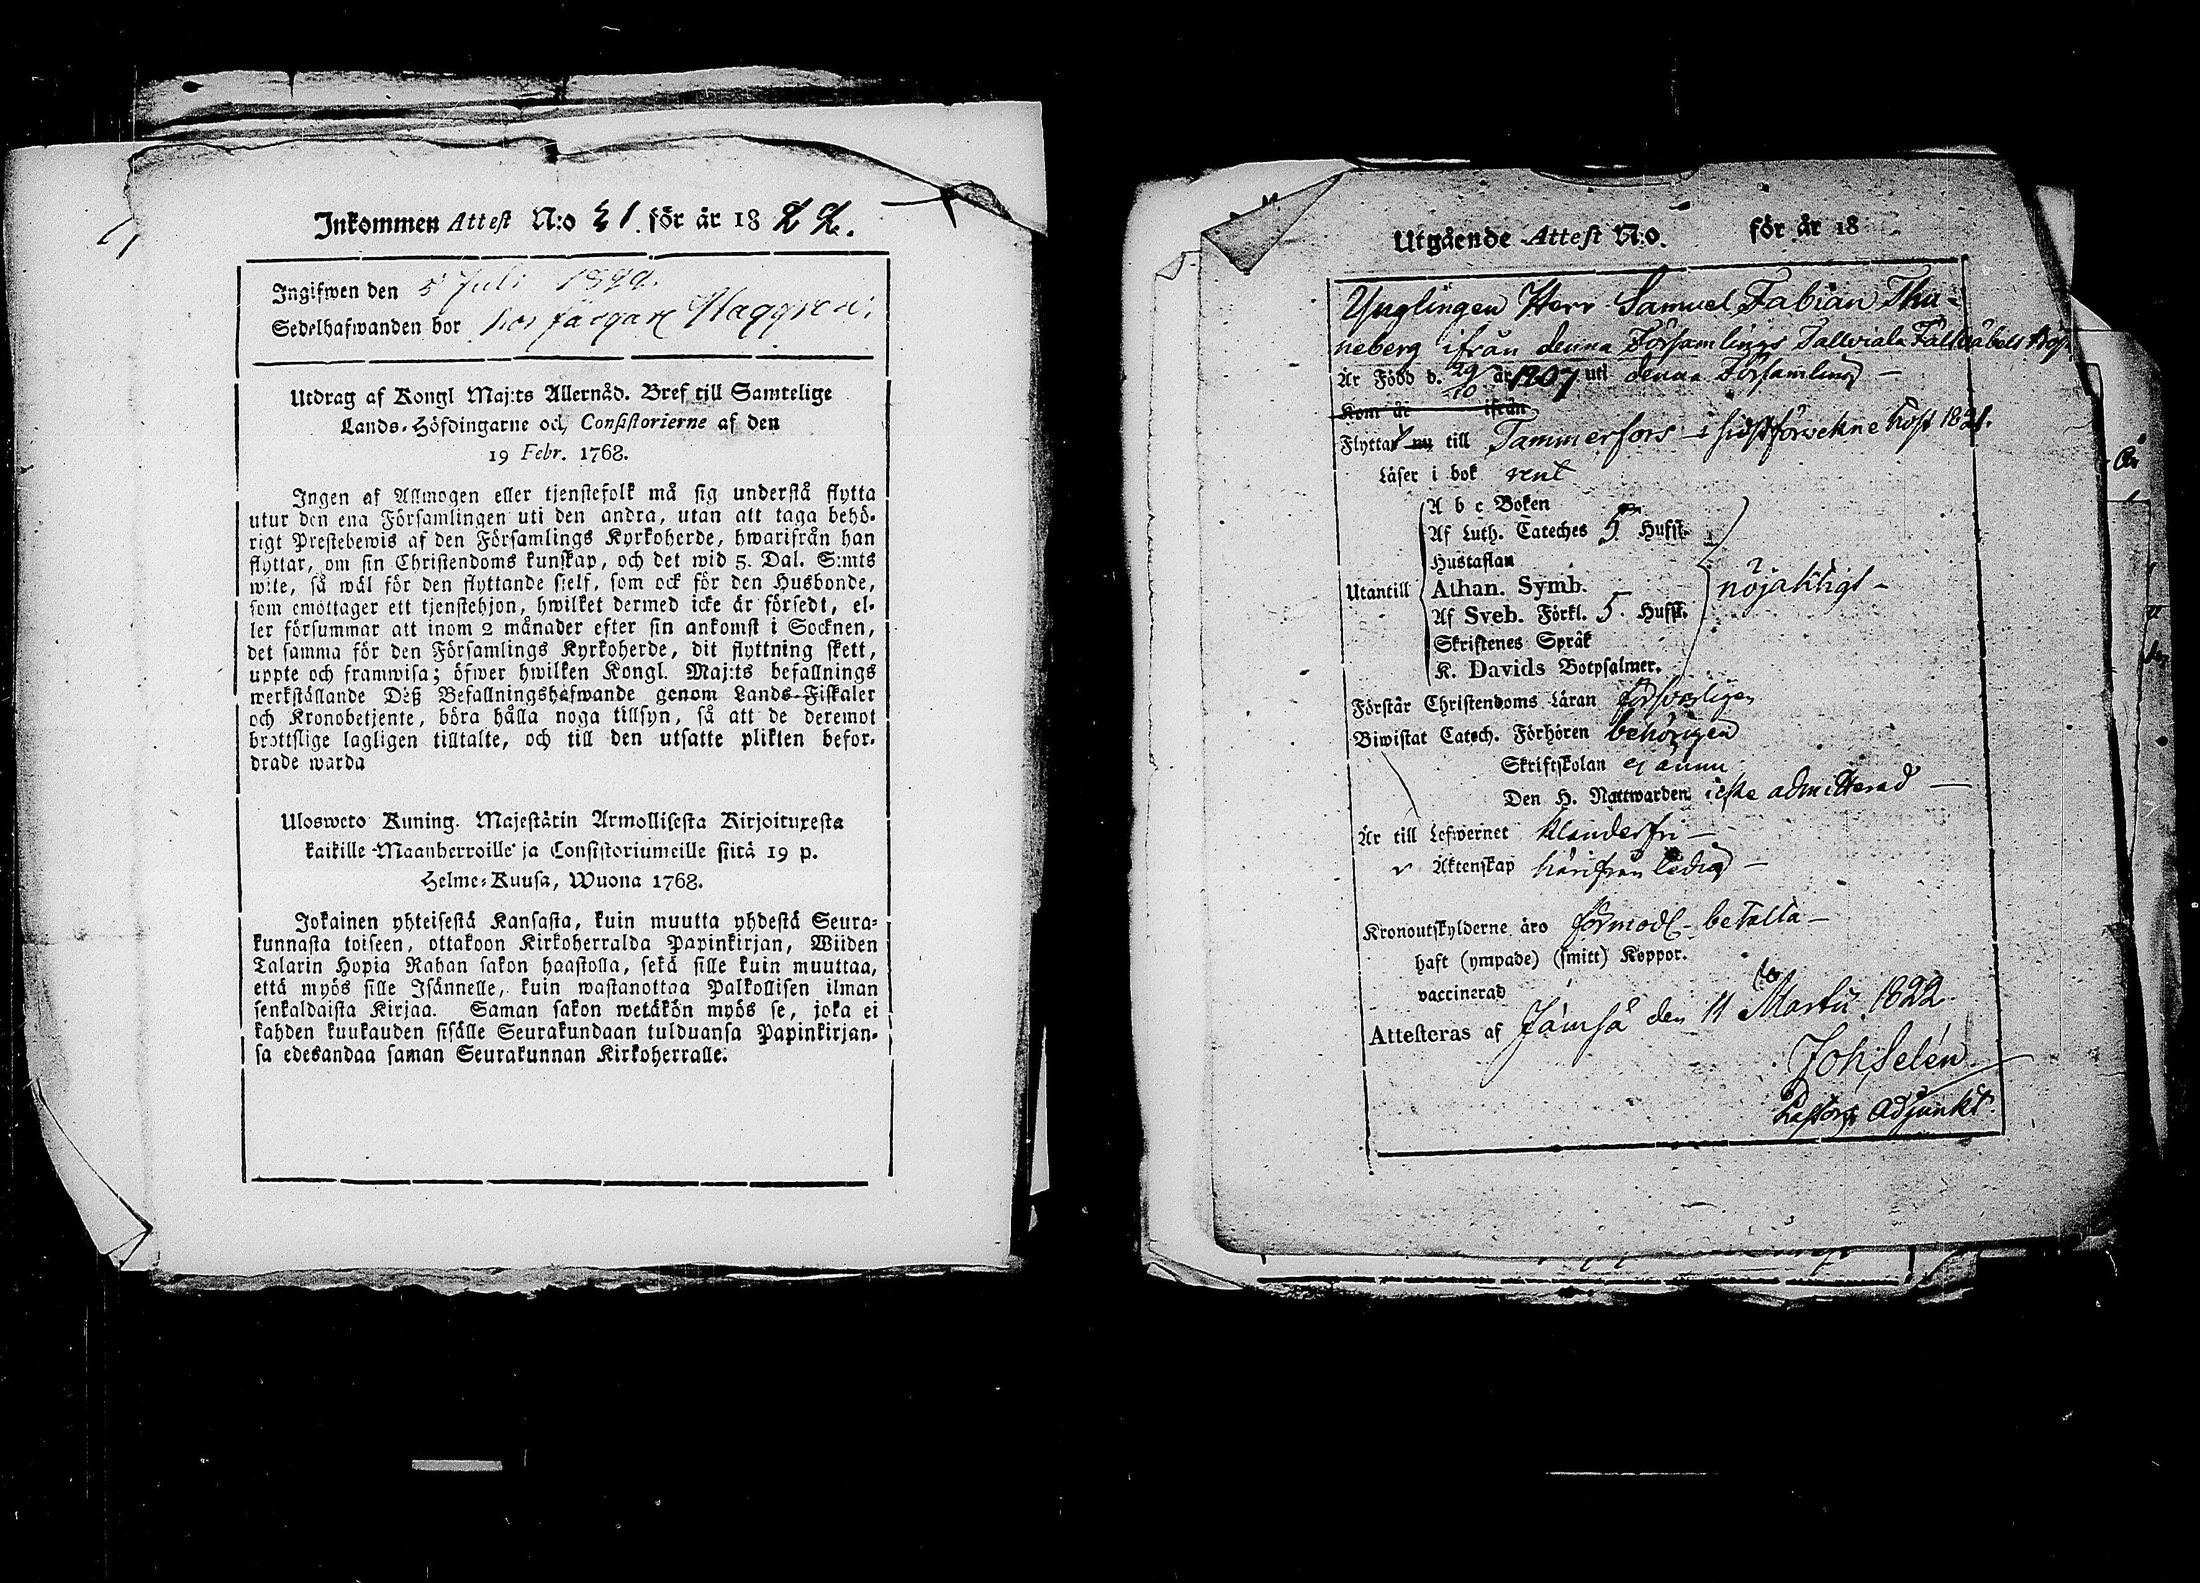 Inkommen Attest N:o 21. för år 1822.
Ingifwen den 5 Juli 1822.
Sedelhafwanden bor hos färgare Haggren.
Utdrag af Kongl Maj:ts Allernåd. Bref till Samtelige
Lands-Höfdingarne och Consistorierne af den
19 Febr. 1768.
Ingen af Allmogen eller tjenstefolk må sig understå flytta
utur den ena Församlingen uti den andra, utan att taga behö-
rigt Prestebewis af den Församlings Kyrkoherde, hwarifrån han
flyttar, om sin Christendoms kunskap, och det wid 5. Dal. S:mts
wite, så wäl för den flyttande sielf, som ock för den Husbonde,
som emottager ett tjenstehjon, hwilket dermed icke är försedt, el-
ler försummar att inom 2 månader efter sin ankomst i Socknen,
det samma för den Församlings Kyrkoherde, dit flyttning skett,
uppte och framwisa; öfwer hwilken Kongl. Maj:ts befallnings
werkställande Deß Befallningshafwande genom Lands-Fiskaler
och Kronobetjente, böra hålla noga tillsyn, så att de deremot
brottslige lagligen tilltalte, och till den utsatte plikten befor-
drade warda
Ulosweto Kuning. Majestätin Armollisesta Kirjoituxesta
kaikille Maanherroille ja Consistoriumeille siitä 19 p.
Helme-Kuusa, Wuona 1768.
Jokainen yhteisestä Kansasta, kuin muutta yhdestä Seura-
kunnasta toiseen, ottakoon Kirkoherralda Papinkirjan, Wiiden
Talarin Hopia Rahan sakon haastolla, sekä sille kuin muuttaa,
että myös sille Isännelle, kuin wastanottaa Palkollisen ilman
senkaldaista Kirjaa. Saman sakon wetäkön myös se, joka ei
kahden kuukauden sisälle Seurakundaan tulduansa Papinkirjan-
sa edesandaa saman Seurakunnan Kirkoherralle.
Utgående Attest N:o. för år 18
Ynglingen Herr Samuel Fabian Thu-
neberg ifrån denna Församlings Fältväbels Bös.
Är Född d. 29/10 år 1807 uti denna Församling
Kom år ifrån
Flyttar nu till Tammerfors i sidstförwekne höst 1821.
Läser i bok rent
A b c Boken
Af Luth. Cateches 5 Hufst.
Hustaflan
Utantill Athan. Symb. nöjaktigt
Af Sveb. Förkl. 5. Hufst.
Skriftenes Språk
K. Davids Botpsalmer.
Förstår Christendoms Läran försvarligen
Biwistat Catech. Förhören behörigen
Skriftskolan ej ännu
Den H. Nattwarden icke admitterad
Är till Lefwernet klanderfri
Äktenskap härifrån ledig
Kronoutskylderne äro förmodl. betalta
haft (ympade) (smitt) Koppor.
vaccinerad
Attesteras af Jämsä den 11 Martii 1822
Joh Selén
Pastors Adjunkt.